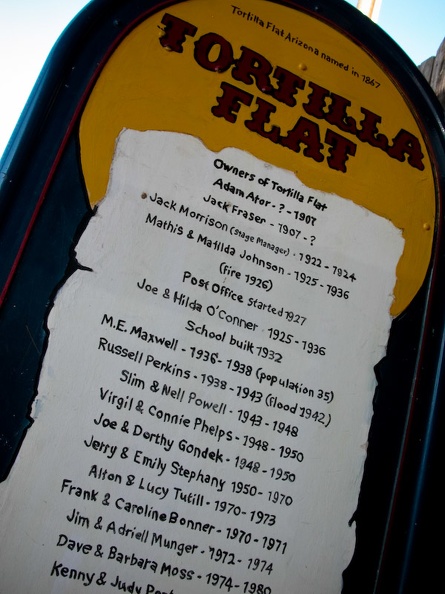 Tortilla Flat Arizona named in 1867
TORTILLA
FLAT
Owners of Tortilla Flat
Adam Ator - ? - 1907
Jack Fraser - 1907 - ?
Jack Morrison (Stage Manager) - 1922 - 1924
Mathis & Matilda Johnson - 1925 - 1936
(fire 1926)
Post Office started 1927
Joe & Hilda O'Conner - 1925 - 1936
School built 1932
M.E. Maxwell - 1936 - 1938 (population 35)
Russell Perkins - 1938 - 1943 (flood 1942)
Slim & Nell Powell - 1943 - 1948
Virgil & Connie Phelps - 1948 - 1950
Joe & Dorthy Gondek - 1948 - 1950
Jerry & Emily Stephany 1950 - 1970
Alton & Lucy Tutill - 1970 - 1973
Frank & Caroline Bonner - 1970 - 1971
Jim & Adriell Munger - 1972 - 1974
Dave & Barbara Moss - 1974 - 1980
Kenny & Judy